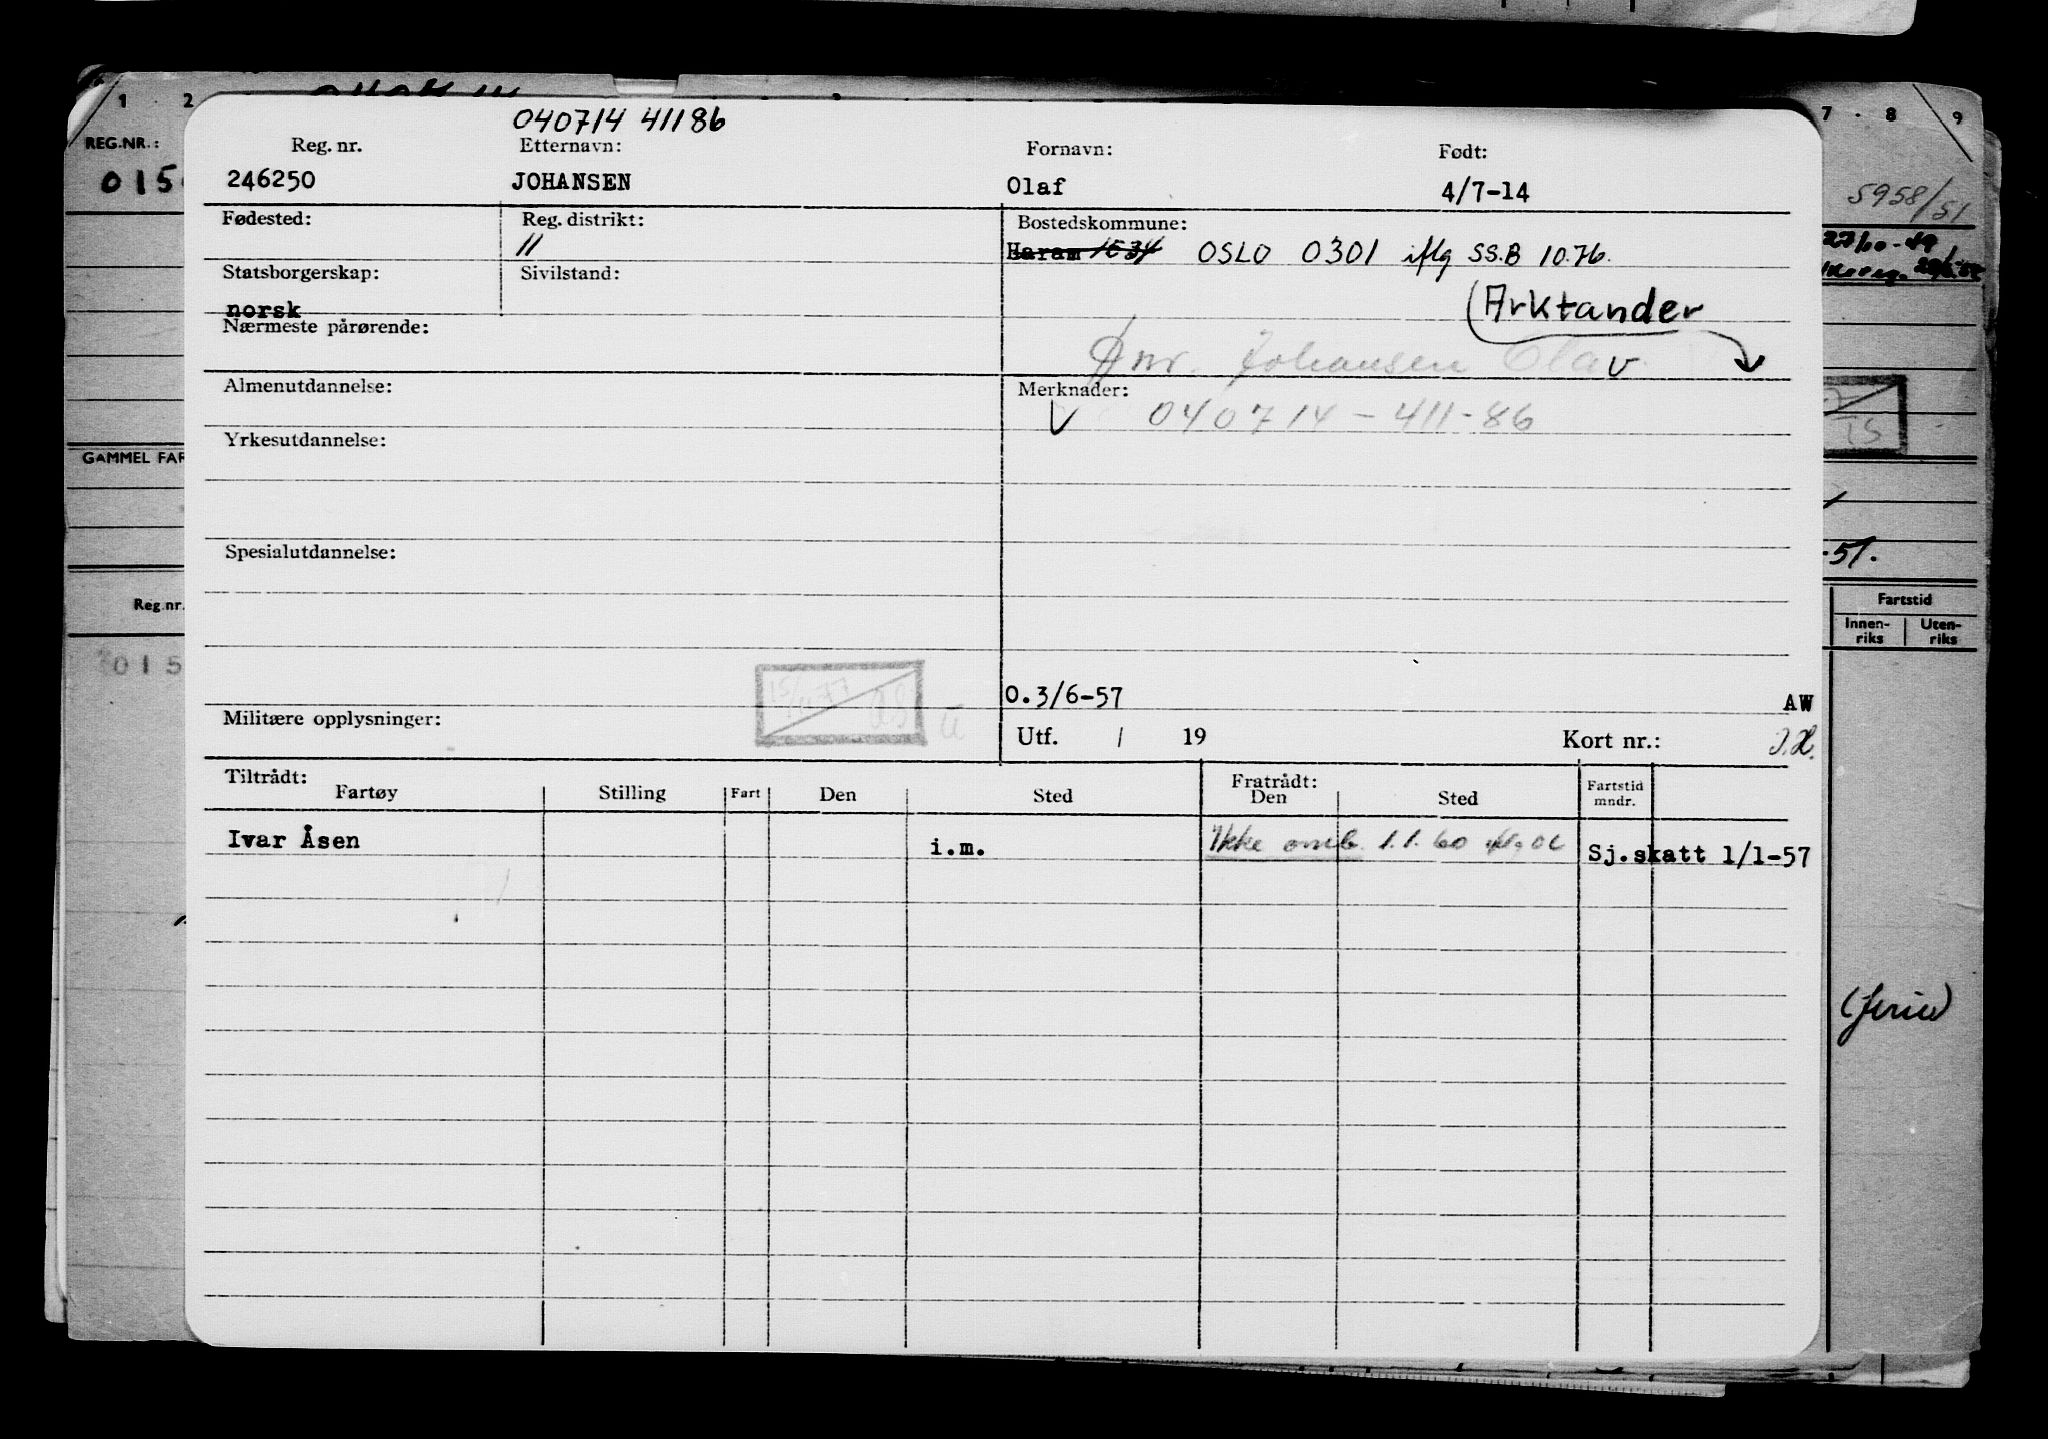 1 · 2
7 · 8 9
REG.NR.:
015
5958/51
040714 41186
Reg. nr. Etternavn: Fornavn: Født:
246250 JOHANSEN Olaf 4/7-14
Fødested: Reg. distrikt: Bostedskommune:
11 Haram 1534 OSLO 0301 iflg SS.B 10.76.
Statsborgerskap: Sivilstand:
norsk (Arktander
Nærmeste pårørende:
Johansen Olav
Almenutdannelse: Merknader:
040714-411-86
Yrkesutdannelse:
GAMMEL FAR
Spesialutdannelse:
-51.
Reg.nr.
Fartstid
Innen-riks Uten-riks
015
0.3/6-57 AW
Militære opplysninger: Utf. / 19 Kort nr.:
Tiltrådt: Fratrådt:
Fartøy Stilling Fart Den Sted Den Sted Fartstid mndr.
Ivar Åsen i.m. Ikke omb. 1.1.60 Sj.skatt 1/1-57